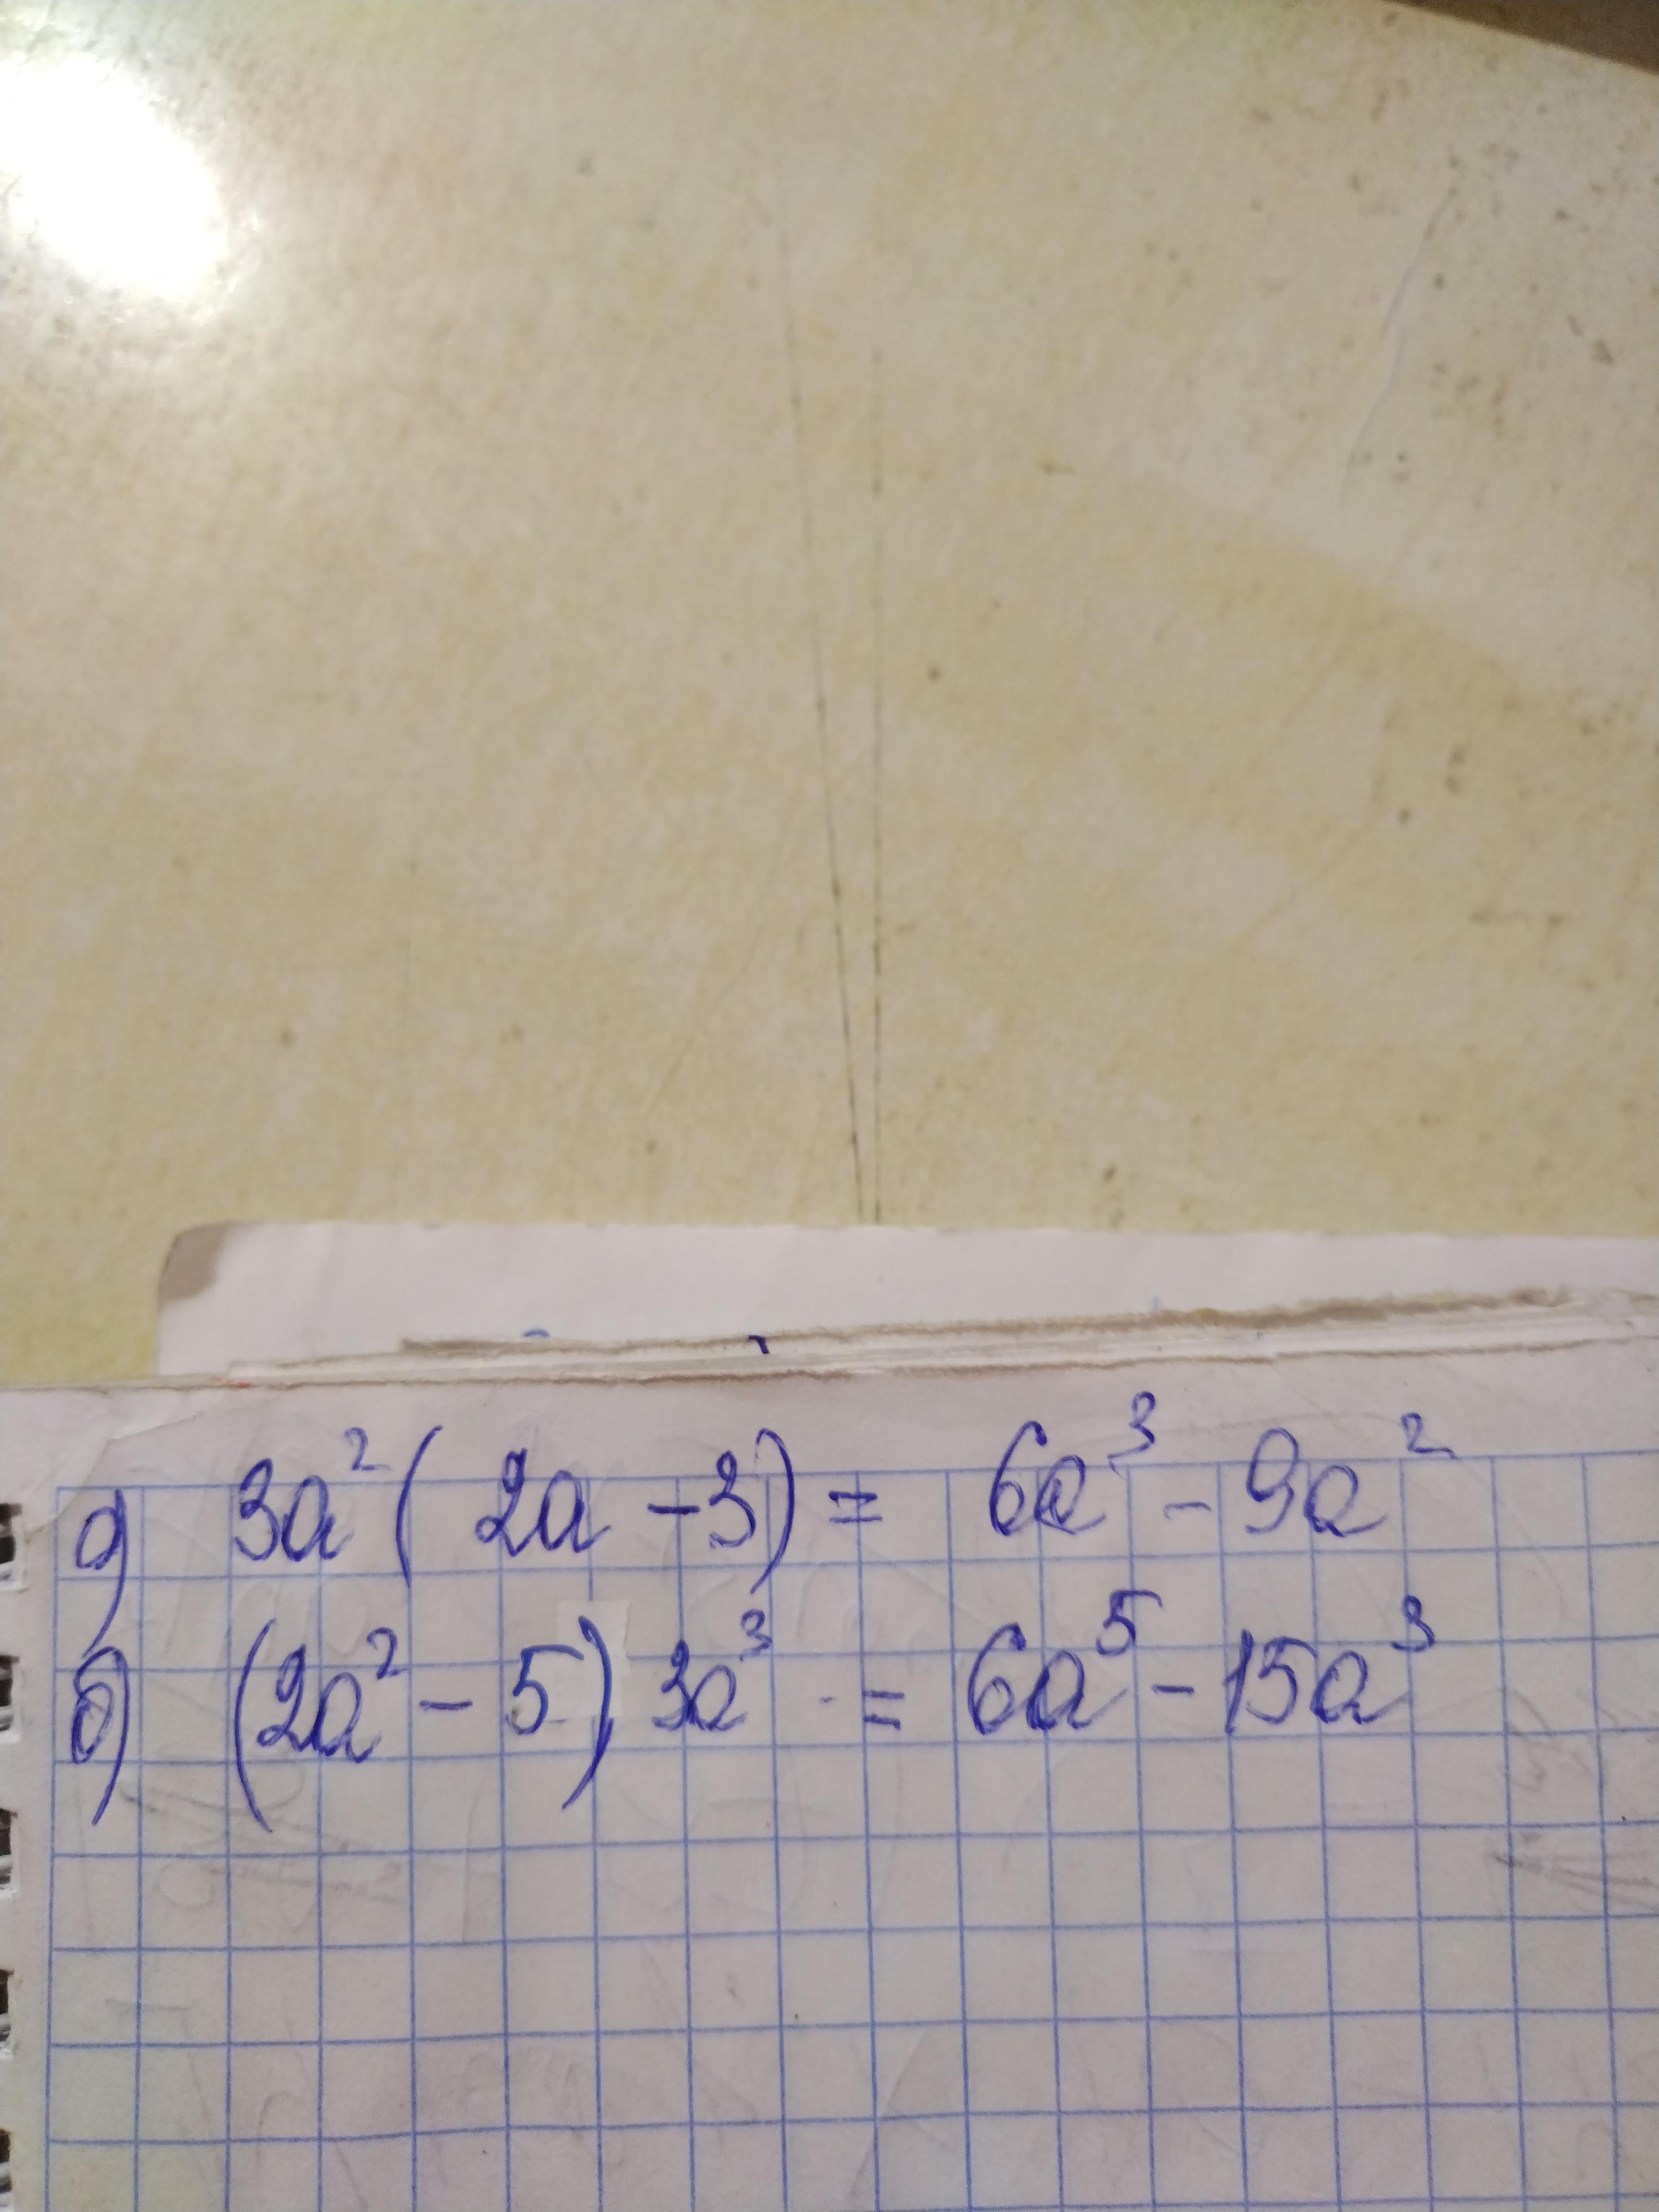 а) 3a²( 2a - 3) = 6a³ - 9a²
б) (2a² - 5) 3a³ = 6a⁵ - 15a³